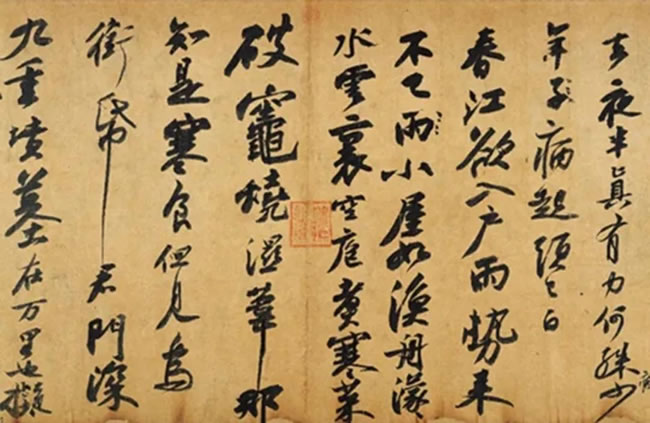 去夜半真有力何殊少
年子病起頭已白
春江欲入户雨勢来
不已雨小屋如漁舟濛
水雲裏空庖煑寒菜
破竈燒濕葦那
知是寒食但見烏
銜帋君門深
九重墳墓在万里也擬